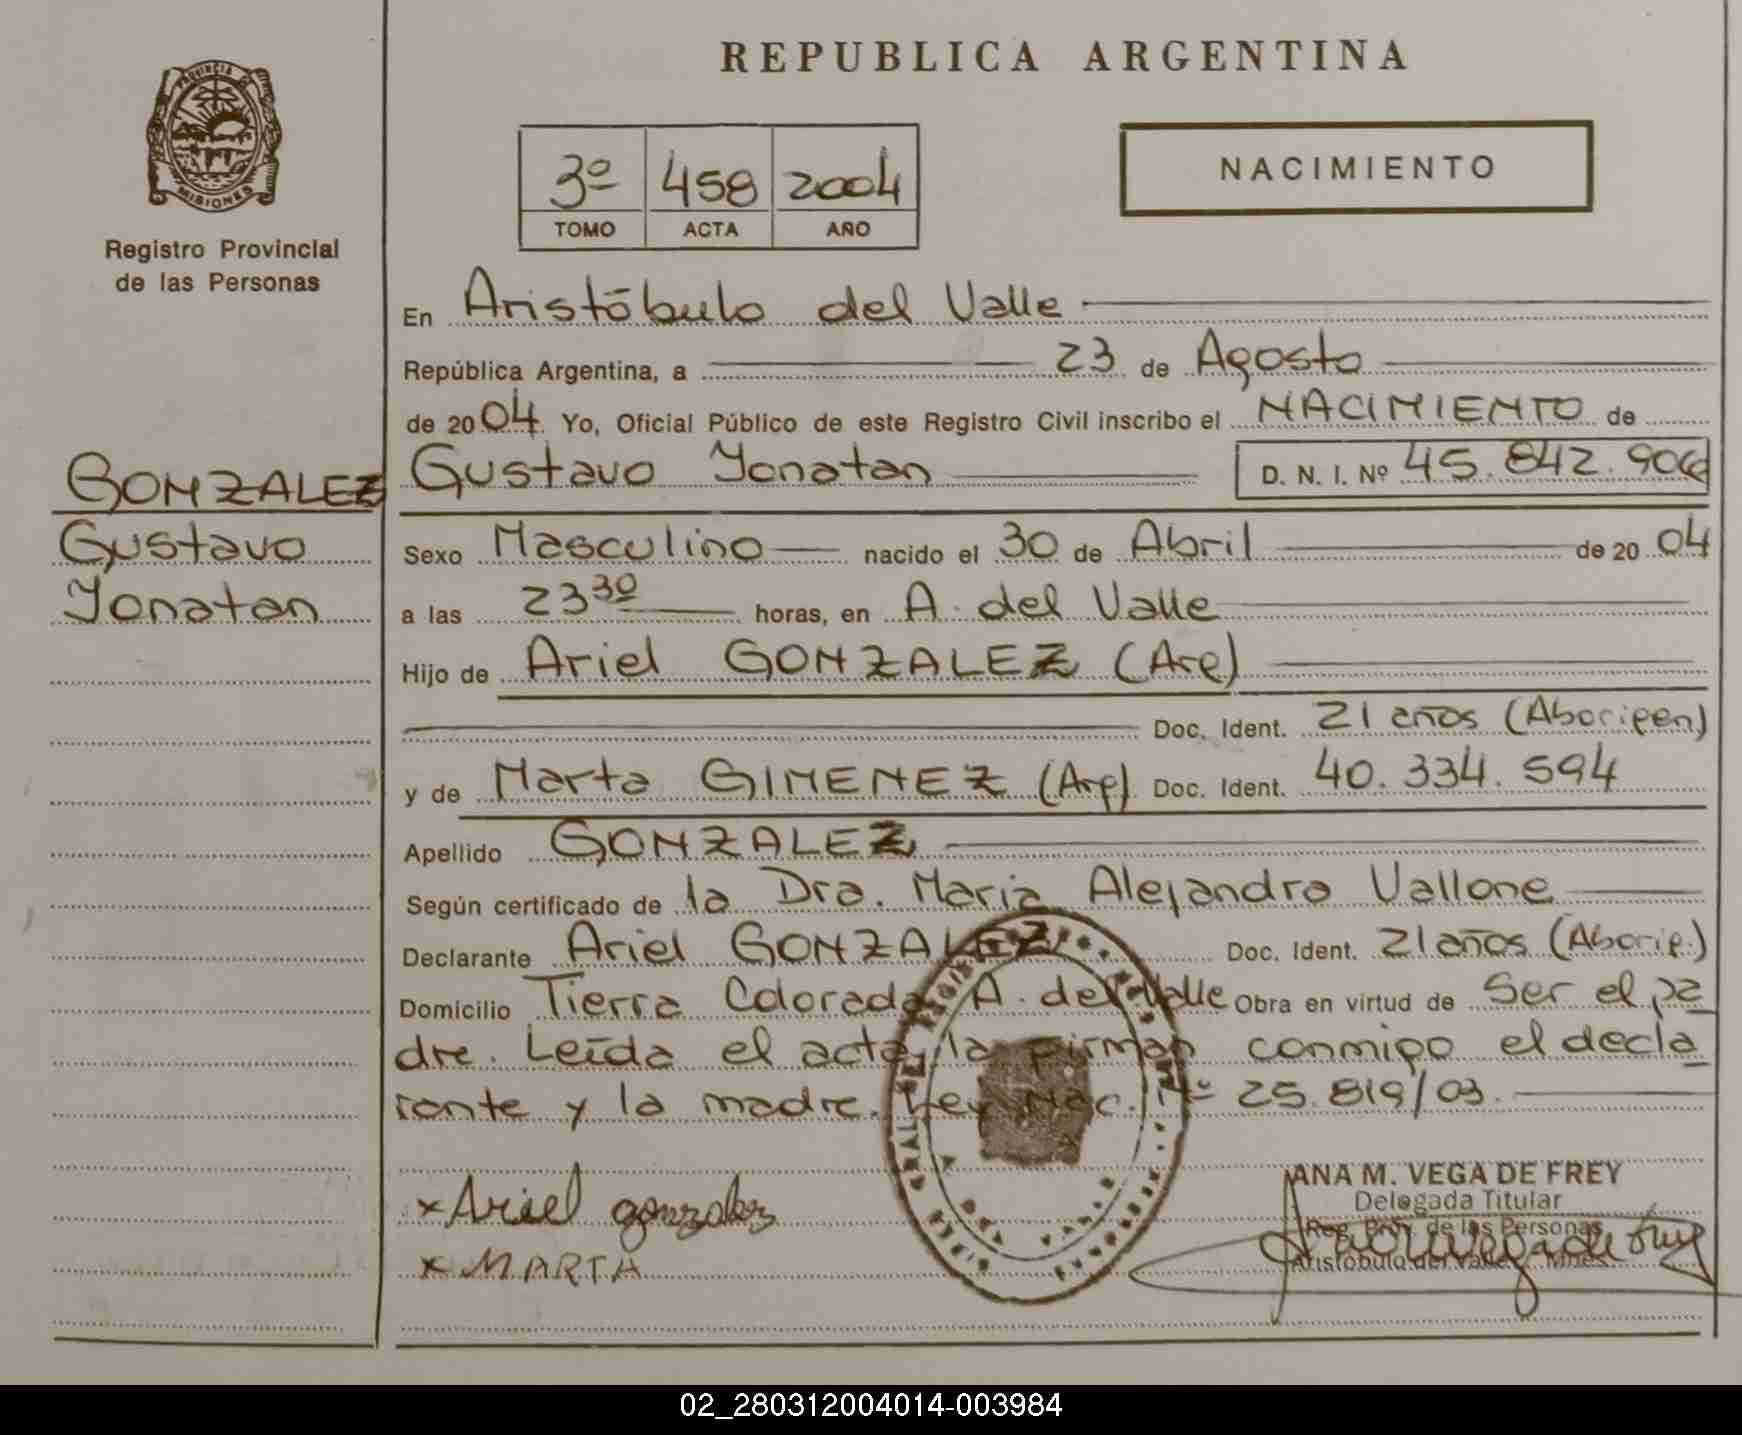 PROVINCIA DE
MISIONES
Registro Provincial
de las Personas
GONZALEZ
Gustavo
Yonatan
REPUBLICA ARGENTINA
3º 458 2004
TOMO ACTA AÑO
NACIMIENTO
En Aristóbulo del Valle
República Argentina, a 23 de Agosto
de 2004 Yo, Oficial Público de este Registro Civil inscribo el NACIMIENTO de
Gustavo Yonatan D. N. I. Nº 45.842.906
Sexo Masculino nacido el 30 de Abril de 2004
a las 23³⁰ horas, en A. del Valle
Hijo de Ariel GONZALEZ (Arg)
Doc. Ident. 21 años (Aborigen)
y de Marta GIMENEZ (Arg) Doc. Ident. 40.334.594
Apellido GONZALEZ
Según certificado de la Dra. Maria Alejandra Vallone
Declarante Ariel GONZALEZ Doc. Ident. 21 años (Aborig.)
Domicilio Tierra Colorada A. del Valle Obra en virtud de Ser el pa
dre. Leída el acta, la firman conmigo el decla
rante y la madre. Ley Nac. Nº 25.819/03.
x Ariel gonzalez
x MARTA
ANA M. VEGA DE FREY
Delegada Titular
Reg. Prov. de las Personas
Aristóbulo del Valle - Mnes.
02_280312004014-003984